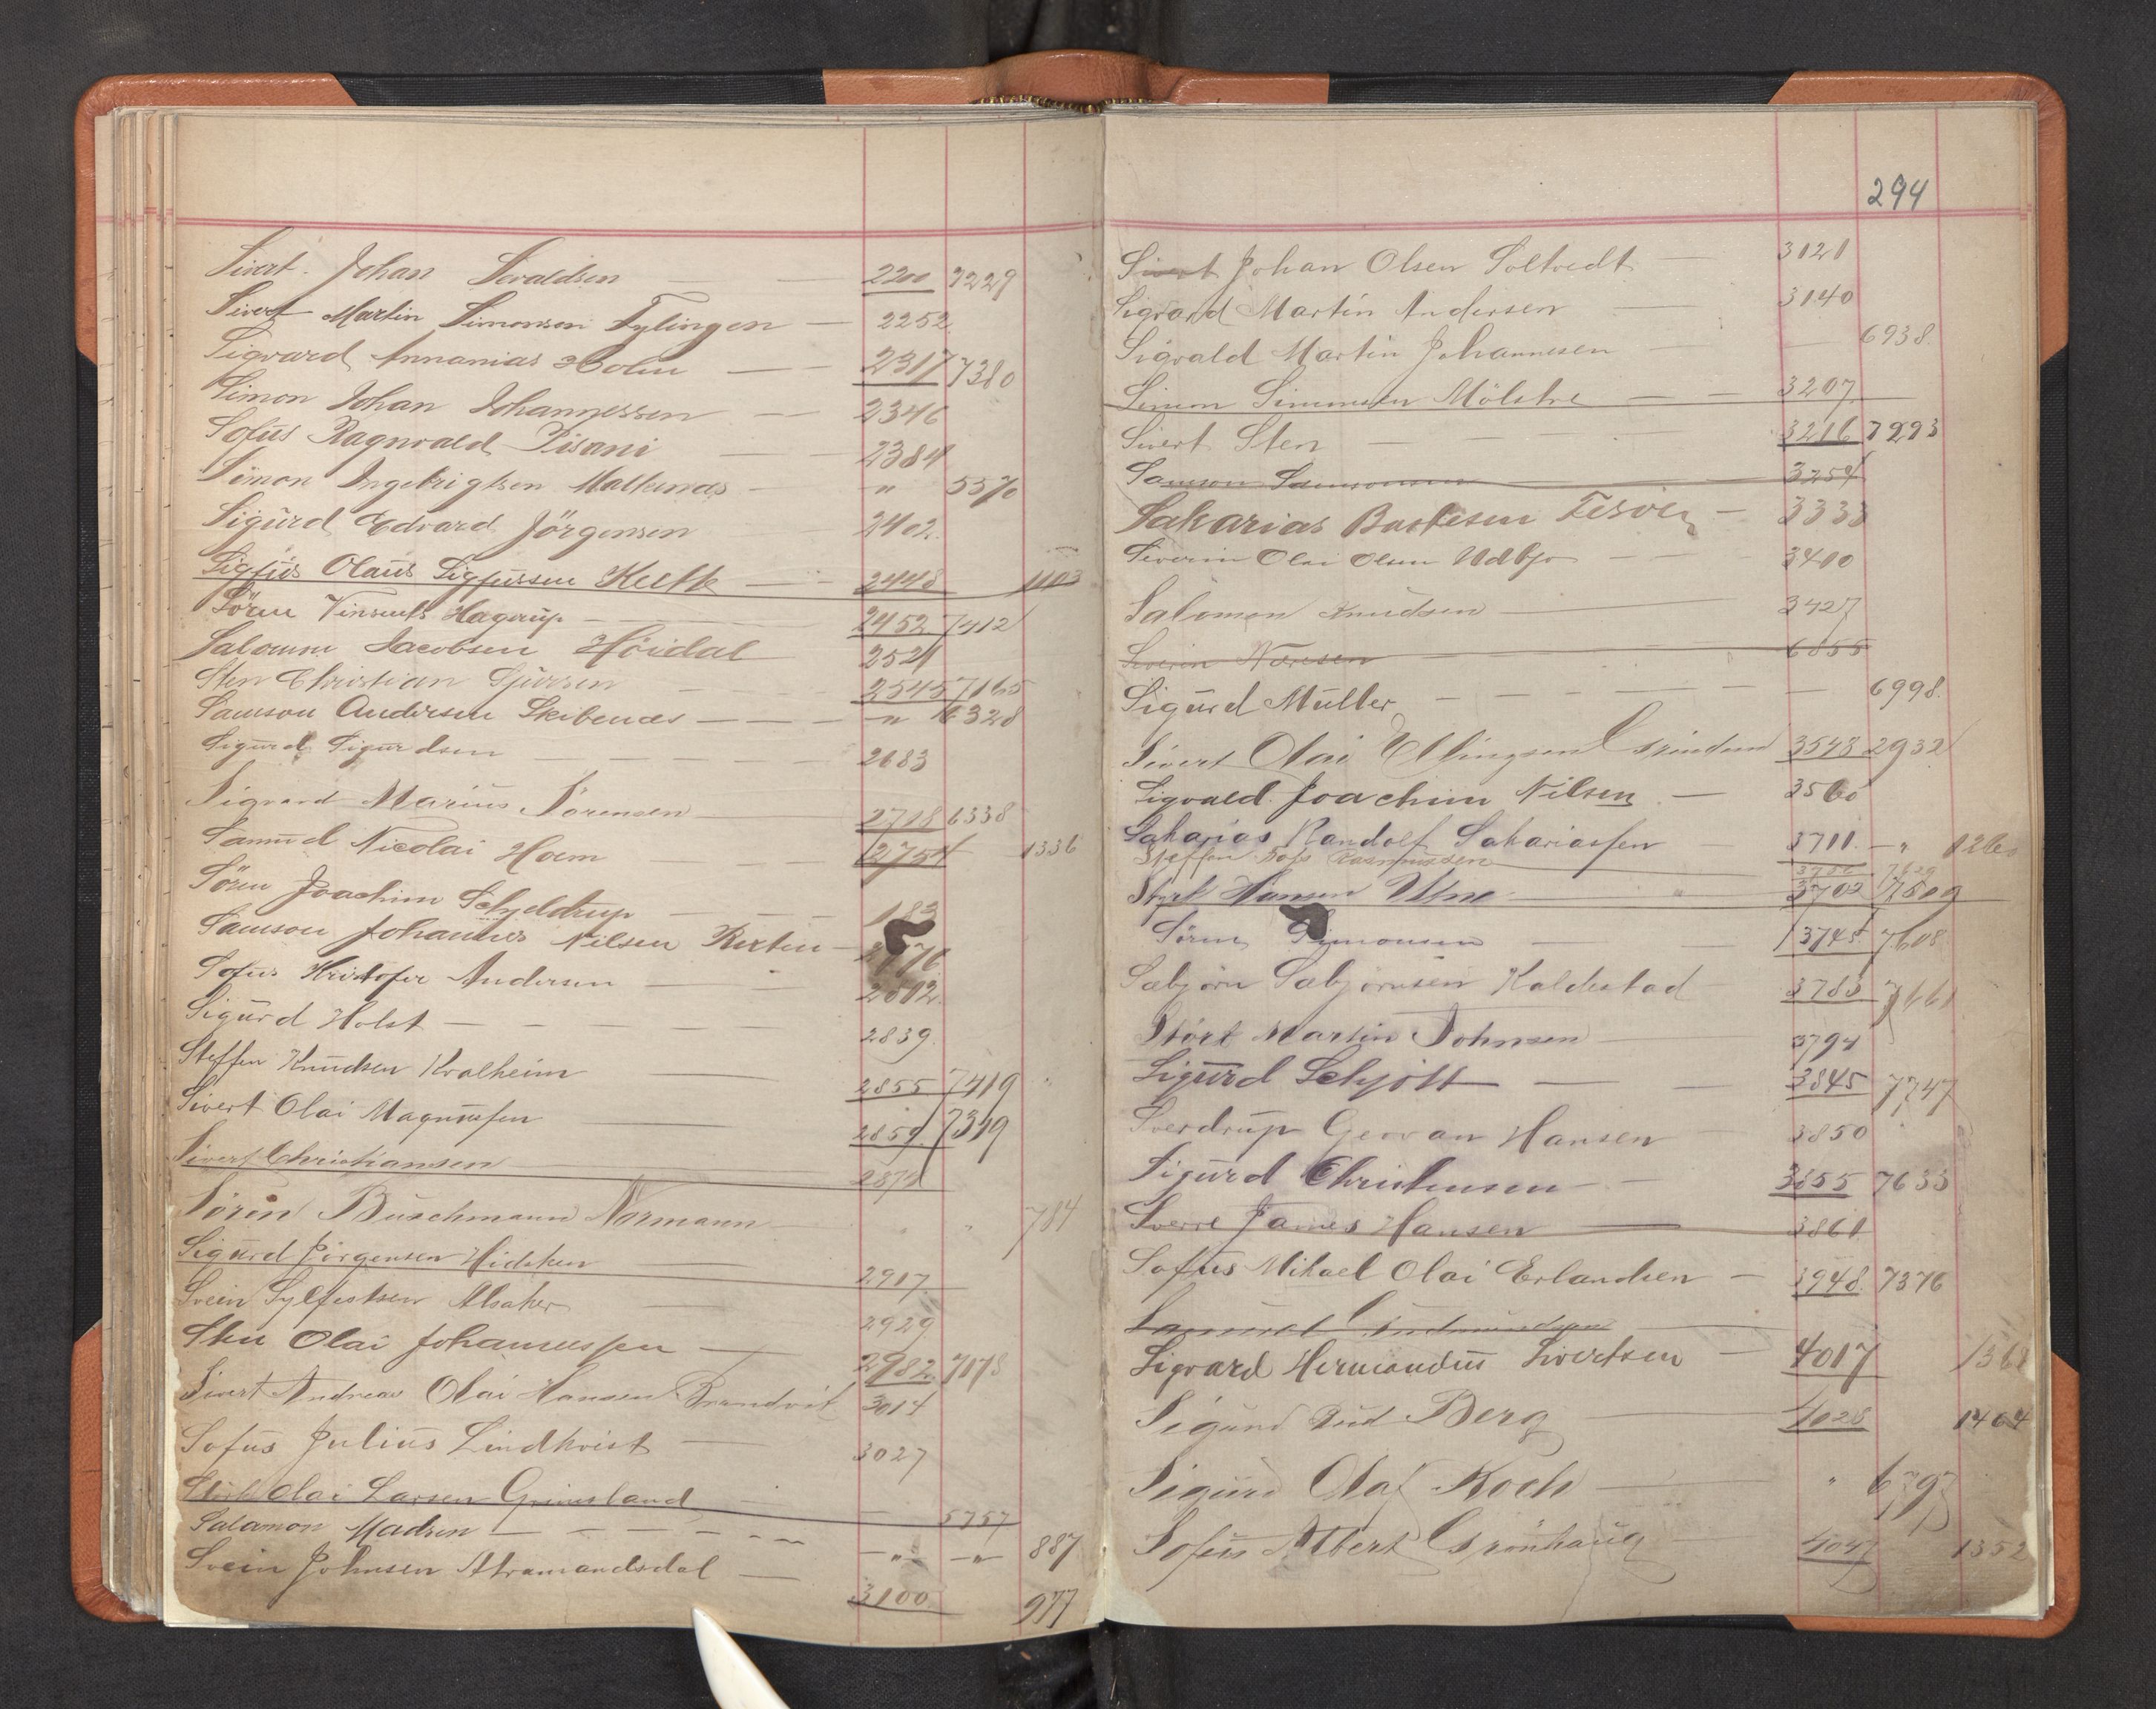 Sivert Johan Sivaldsen — 2200 7229
Sivert Martin Simonsen Tylingen — 2252
Sigvard Annanias Holm — 2317 7380
Simon Johan Johannessen — 2346
Sofus Ragnvald Pisani — 2384
Simon Ingebrigtsen Malkenæs — " 5570
Sigurd Edvard Jörgensen 2402
Sigfús Olaus Sigfussen 2448 1103
Sören Vinsents Hagerup — 2452 7412
Salomon Jacobsen Höidal 2521
Sten Christian Sjursen — 2545 7165
Samson Andersen Skibenæs — " 6328
Sigurd Sigurdsen — 2683
Sigvard Marius Sörensen 2718 6338
Samuel Nicolai Hoem — 2754 1336
Sören Joachim Schjeldrup — 183
Samson Johannes Nilsen —
Sofus Kristofer Andersen — 2812
Sigurd Holst — 2839
Steffen Knudsen Kvalheim — 2855 7419
Sivert Olai Magnussen — 2859 7319
Sivert Christiansen 2874
Sören Buschmann Normann — 784
Sigurd Jörgensen — 2917
Svein Sylfestsen Alsaker — 2929
Sten Olai Johannessen — 2982 7178
Sivert Andreas Olai Hansen Brandvik 3014
Sofus Julius Lindkvist — 3027
Olai Larsen Grimsland — 5757
Salamon Madsen — " — " 887
Svein Johnsen Atramandsdal — 3100 977
294
Sivert Johan Olsen Soltvedt — 3121
Sigvard Martin Andersen — 3140
Sigvald Martin Johannesen — 6938
Simon Simonsen Mölstre — 3207
Sivert Sten — 3216 7293
Samson Samsonsen 3254
Sakarias Bastesen — 3333
Severin Olai Olsen Udbjo — 3410
Salomon Knudsen — 3427
Severin 6855
Sigurd Müller — 6998
Sivert Olai Ellingsen Grindem 3548 2932
Sigvald Joachim Nilsen — 3560
Sakarias Randolf Sakariassen 3711 — "
Steffen Rasmussen
Styrk Hansen Utne 3702 7809
Sören Simonsen — 3745 7608
Sæbjörn Sæbjörnsen Kaldestad 3783 7661
Stört Martin Johnsen 3794
Sigurd Schjött — 3845 7747
Sverdrup Hansen 3850
Sigurd Christensen — 3855 7633
Sverre James Hansen — 3861
Sofus Mikael Olai Erlandsen — 3948 7376
Samuel Gudmundsen
Sigvard Hermandus Sivertsen — 4017
Sigurd Berg — 4028 1464
Sigurd Olaf Koch — " 6797
Sofus Albert Grönhaug 4047 1352